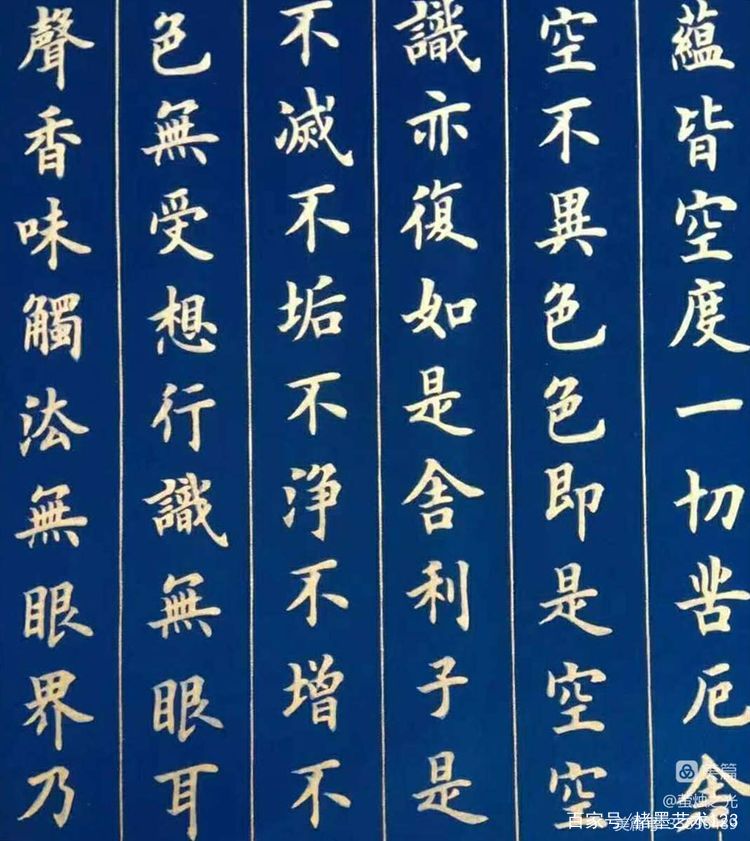 蘊皆空度一切苦厄舍
空不異色色即是空空
識亦復如是舍利子是
不滅不垢不淨不增不
色無受想行識無眼耳
聲香味觸法無眼界乃
美篇
@萤烛之光
百家号/楮墨艺术123